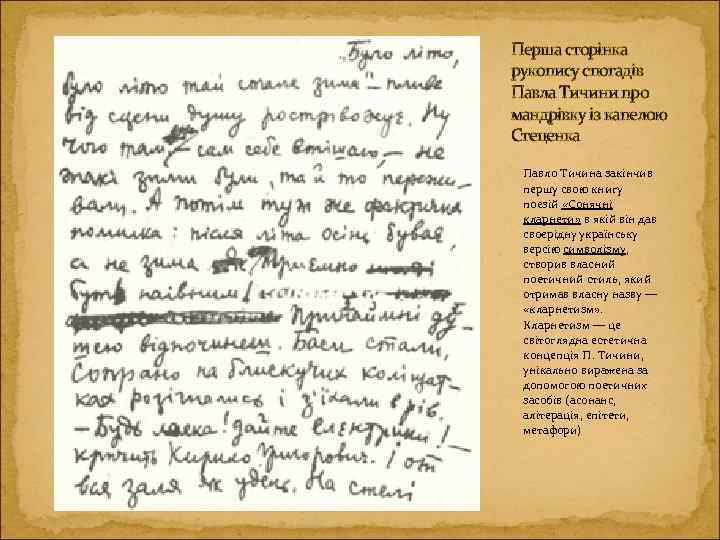 „Було літо,
було літо тай стала зима" – пливе
від сцени душу розтрівожує. Ну
чого там, – сам себе втішаю, – не
такі зими були, та й то пережи-
вали. А потім туж же фактична
помилка: після літа осінь буває,
а не зима Приємно
буть наівним!
Принаймні ду-
шею відпочинеш. Баси стали,
Сопрано на блискучих коліщат-
ках розігнались і з'їхали в рів.
– Будь ласка! дайте електрики!
кричить Кирило Григорович. І от
вся заля як удень. На стелі
Перша сторінка
рукопису спогадів
Павла Тичини про
мандрівку із капелою
Стеценка
Павло Тичина закінчив
першу свою книгу
поезій «Сонячні
кларнети» в якій він дав
своєрідну українську
версію символізму,
створив власний
поетичний стиль, який
отримав власну назву —
«кларнетизм».
Кларнетизм — це
світоглядна естетична
концепція П. Тичини,
унікально виражена за
допомогою поетичних
засобів (асонанс,
алітерація, епітети,
метафори)